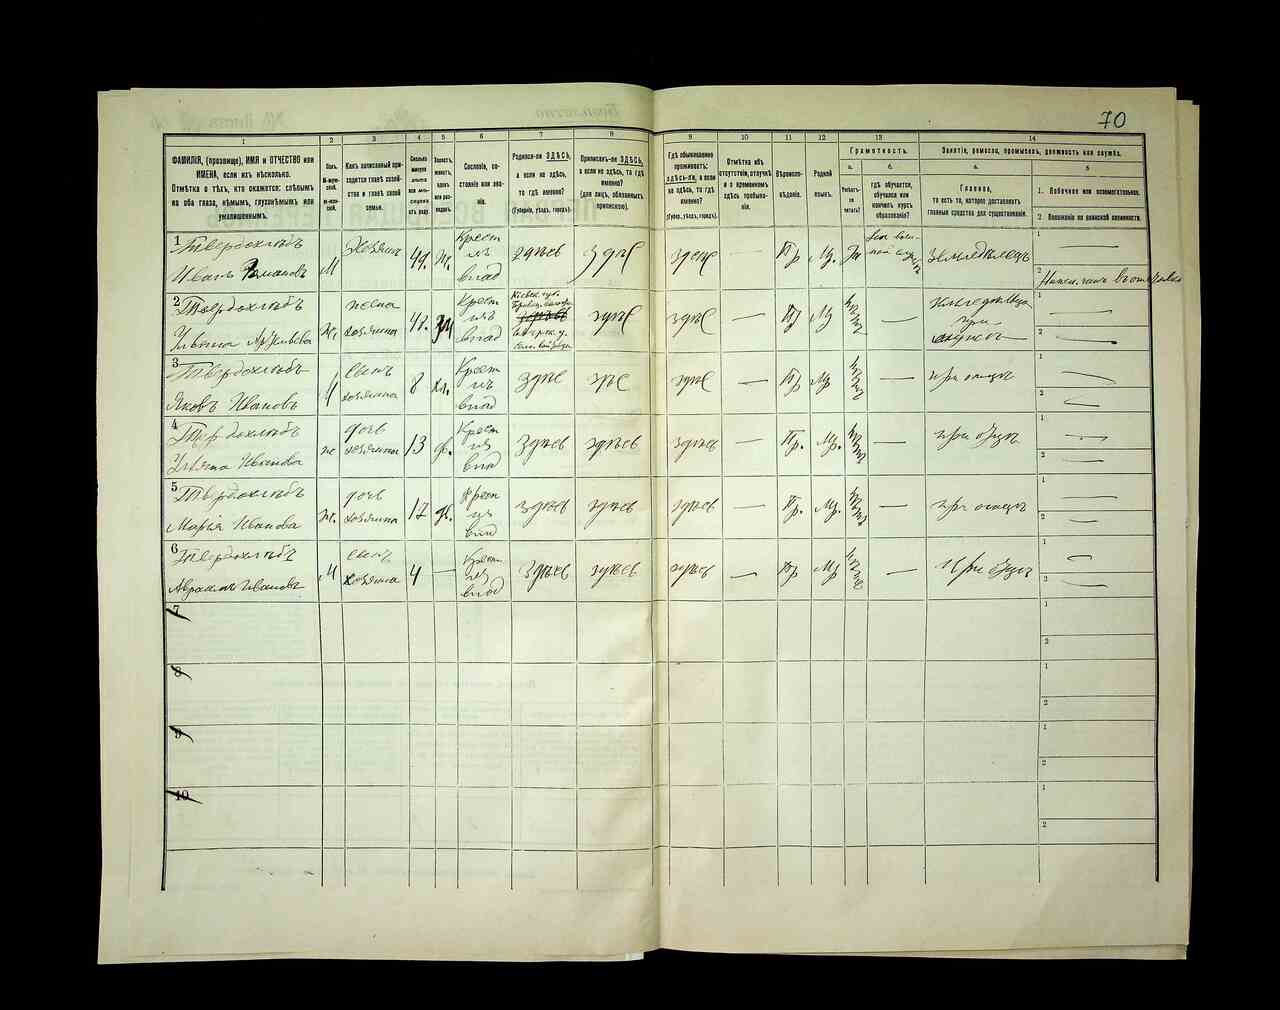 70
1 2 3 4 5 6 7 8 9 10 11 12 13 14
ФАМИЛІЯ, (прозвище), ИМЯ и ОТЧЕСТВО или
ИМЕНА, если ихъ нѣсколько.
Отмѣтка о тѣхъ, кто окажется: слѣпымъ
на оба глаза, нѣмымъ, глухонѣмымъ или
умалишеннымъ.
Полъ.
М-муж-
ской.
Ж-жен-
скій.
Какъ записанный при-
ходится главѣ хозяй-
ства и главѣ своей
семьи.
Сколько
минуло
лѣтъ
или мѣ-
сяцевъ
отъ роду.
Сословіе, со-
стояніе или зва-
ніе.
Родился-ли ЗДѢСЬ,
а если не здѣсь,
то гдѣ именно?
(Губернія, уѣздъ, городъ).
Приписанъ-ли ЗДѢСЬ,
а если не здѣсь, то гдѣ
именно?
(для лицъ, обязанныхъ
припискою).
Гдѣ обыкновенно
проживаетъ:
здѣсь-ли, а если
не здѣсь, то гдѣ
именно?
(Губер., уѣздъ, городъ).
Отмѣтка объ
отсутствіи, отлучкѣ
и о временномъ
здѣсь пребыва-
ніи.
Вѣроиспо-
вѣданіе.
Родной
языкъ.
Грамотность.
а.
Умѣетъ-
ли
читать?
б.
гдѣ обучается,
обучался или
кончилъ курсъ
образованія?
Занятіе, ремесло, промыселъ, должность или служба.
а.
Главное,
то есть то, которое доставляетъ
главныя средства для существованія.
б
1. Побочное или вспомогательное.
2 Положеніе по воинской повинности.
1
Твердохлѣбъ
Иванъ Романовъ
М
Хозяинъ
49
Крест
изъ
влад
здѣсь
здѣс
здѣс
—
Пр
Мр.
Земледѣлецъ
1 —
2
2
Твердохлѣбъ
Ульяна
жена
хозяина
Крест
изъ
влад
Кіевск. губ.
здѣс
здѣс
—
Пр
Мр
—
при
мужѣ
1 —
2 —
3
Твердохлѣбъ
Яковъ Ивановъ
М
сынъ
хозяина
8
хл.
Крест
изъ
влад
здѣс
здѣс
здѣс
—
Пр
Мр
—
при отцѣ
1 —
2 —
4
Твердохлѣбъ
Ульяна Иванова
ж
дочь
хозяина
13
Крест
изъ
влад
здѣсь
здѣсь
здѣсь
—
Пр.
Мр.
—
при отцѣ
1 —
2 —
5
Твердохлѣбъ
Марія Иванова
ж.
дочь
хозяина
17
Крест
изъ
влад
здѣсь
здѣсь
здѣсь
—
Пр.
Мр.
—
при отцѣ
1 —
2 —
6
Твердохлѣбъ
Авраамъ Ивановъ
М
сынъ
хозяина
4
—
Крест
изъ
влад
здѣсь
здѣсь
здѣсь
—
Пр
Мр
—
При отцѣ
1 —
2 —
7
1
2
8
1
2
9
1
2
10
1
2